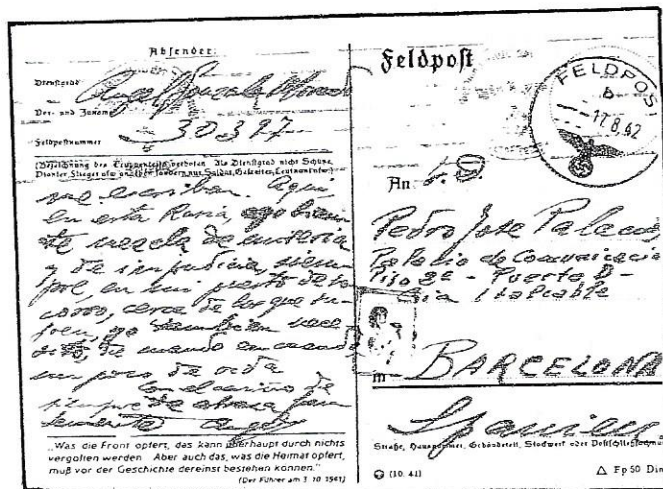 Absender:
Dienstgrad
Vor- und Zuname
Angel
Feldpostnummer
30397
(Bezeichnung des Truppenteils verboten. Als Dienstgrad nicht Schütze,
Pionier, Flieger usw. angeben, sondern nur Soldat, Gefreiter, Leutnant usw.)
me escriban. Aquí,
en esta Rusia,
te mezcla de miseria
y de
en mi puesto de so
corro, cerca de los que su
fren, yo también
de cuando en cuando
un poco de vida
Con el cariño de
siempre te abraza
Angel
„Was die Front opfert, das kann überhaupt durch nichts
vergolten werden. Aber auch das, was die Heimat opfert,
muß vor der Geschichte dereinst bestehen können."
(Der Führer am 3. 10. 1941)
Feldpost
FELDPOST
b
17.8.42
An:
Pedro Jose Palacos
Palacio de Comunicacio
Piso 2º - Puerta D -
BARCELONA
Spanien
Straße, Hausnummer, Gebäudeteil, Stockwerk oder Postschließfachnu
(10. 41)
Fp 50 Din